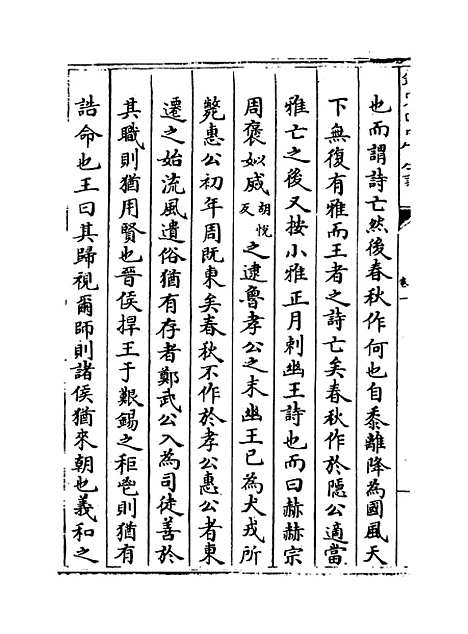 也而謂詩亡然後春秋作何也自黍離降為國風天
下無復有雅而王者之詩亡矣春秋作於隱公適當
雅亡之後又按小雅正月刺幽王詩也而曰赫赫宗
周褒姒烕胡悅反之逮魯孝公之末幽王已為犬戎所
斃惠公初年周既東矣春秋不作於孝公惠公者東
遷之始流風遺俗猶有存者鄭武公入為司徒善於
其職則猶用賢也晉侯捍王于艱錫之秬鬯則猶有
誥命也王曰其歸視爾師則諸侯猶來朝也義和之
卷一